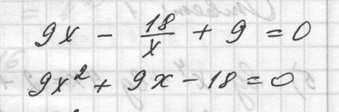 9x - 18/x + 9 = 0
9x² + 9x - 18 = 0